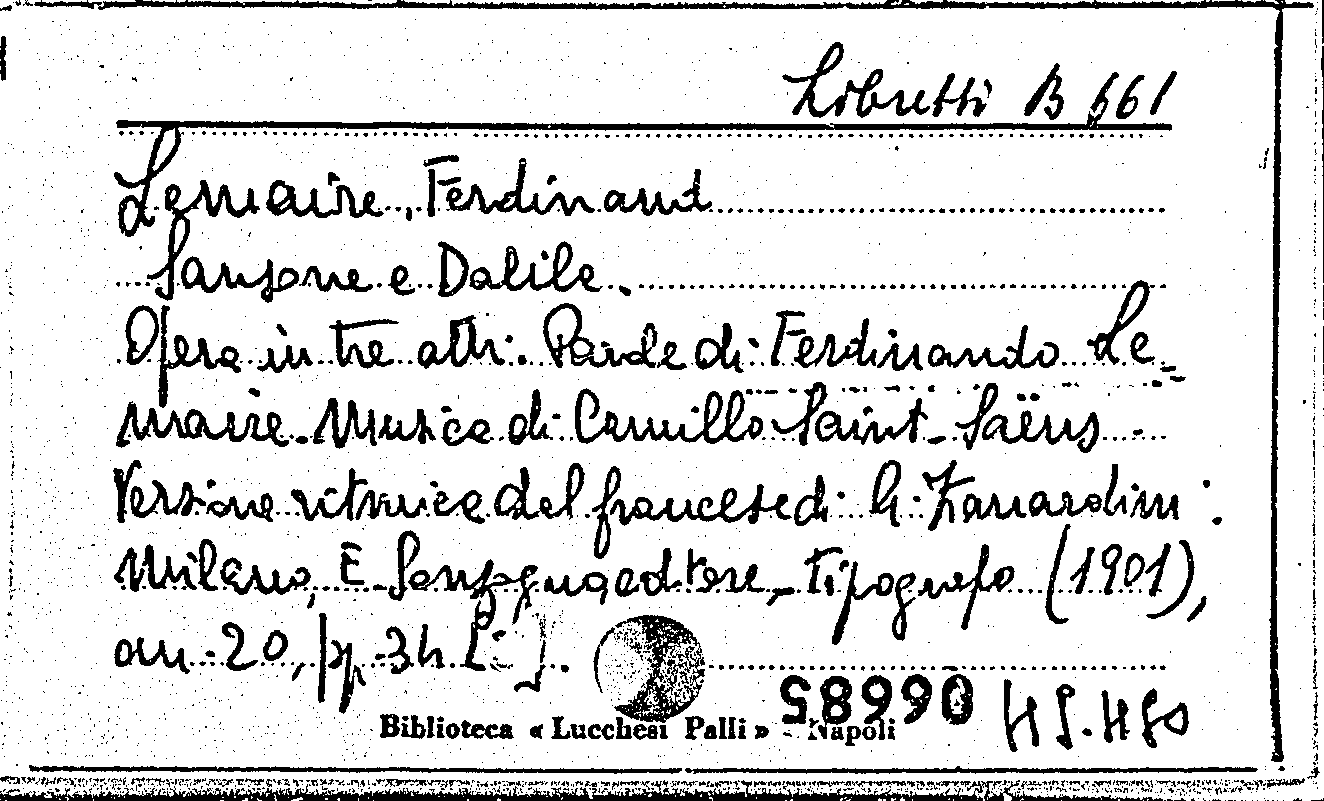 Libretti B 661
Lemaire, Ferdinand
Sansone e Dalila.
Opera in tre atti. Parole di Ferdinando Le-
maire. Musica di Camillo Saint-Saëns.
Versione ritmica dal francese di A. Zanardini.
Milano, E. Sonzogno editore, Tipografo (1901),
cm. 20, pp. 34
Biblioteca « Lucchesi Palli » - Napoli